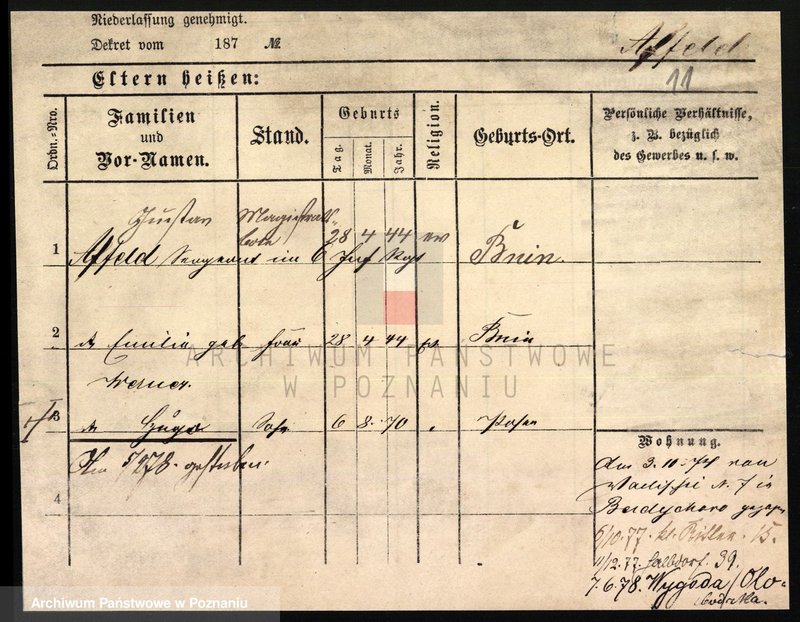 Niederlassung genehmigt.
Dekret vom 187 №
Affeld
11
Eltern heißen:
Ordn.-Nro.
Familien
und
Vor-Namen.
Stand.
Geburts
Tag.
Monat.
Jahr.
Religion.
Geburts-Ort.
Persönliche Verhältnisse,
z. B. bezüglich
des Gewerbes u. s. w.
Gustav Magistrats-
bote 28 4 44 ev
1 Affeld Sergeant im 6 Inf Rgt Bnin.
2 Emilie geb Frau 28 4 44 Bnin
3 Hugo Sohn 6 8. 70 Posen
Am 5/2 78. gestorben.
4
Wohnung.
Am 3. 10. 74 von
Wallischei N. 7 in
Berdychowo
5/10. 77. kl. Ritter 15.
11/12. 77. Halbdorf. 39.
7. 6. 78. Wygoda/
ARCHIWUM PAŃSTWOWE
W POZNANIU
Archiwum Państwowe w Poznaniu